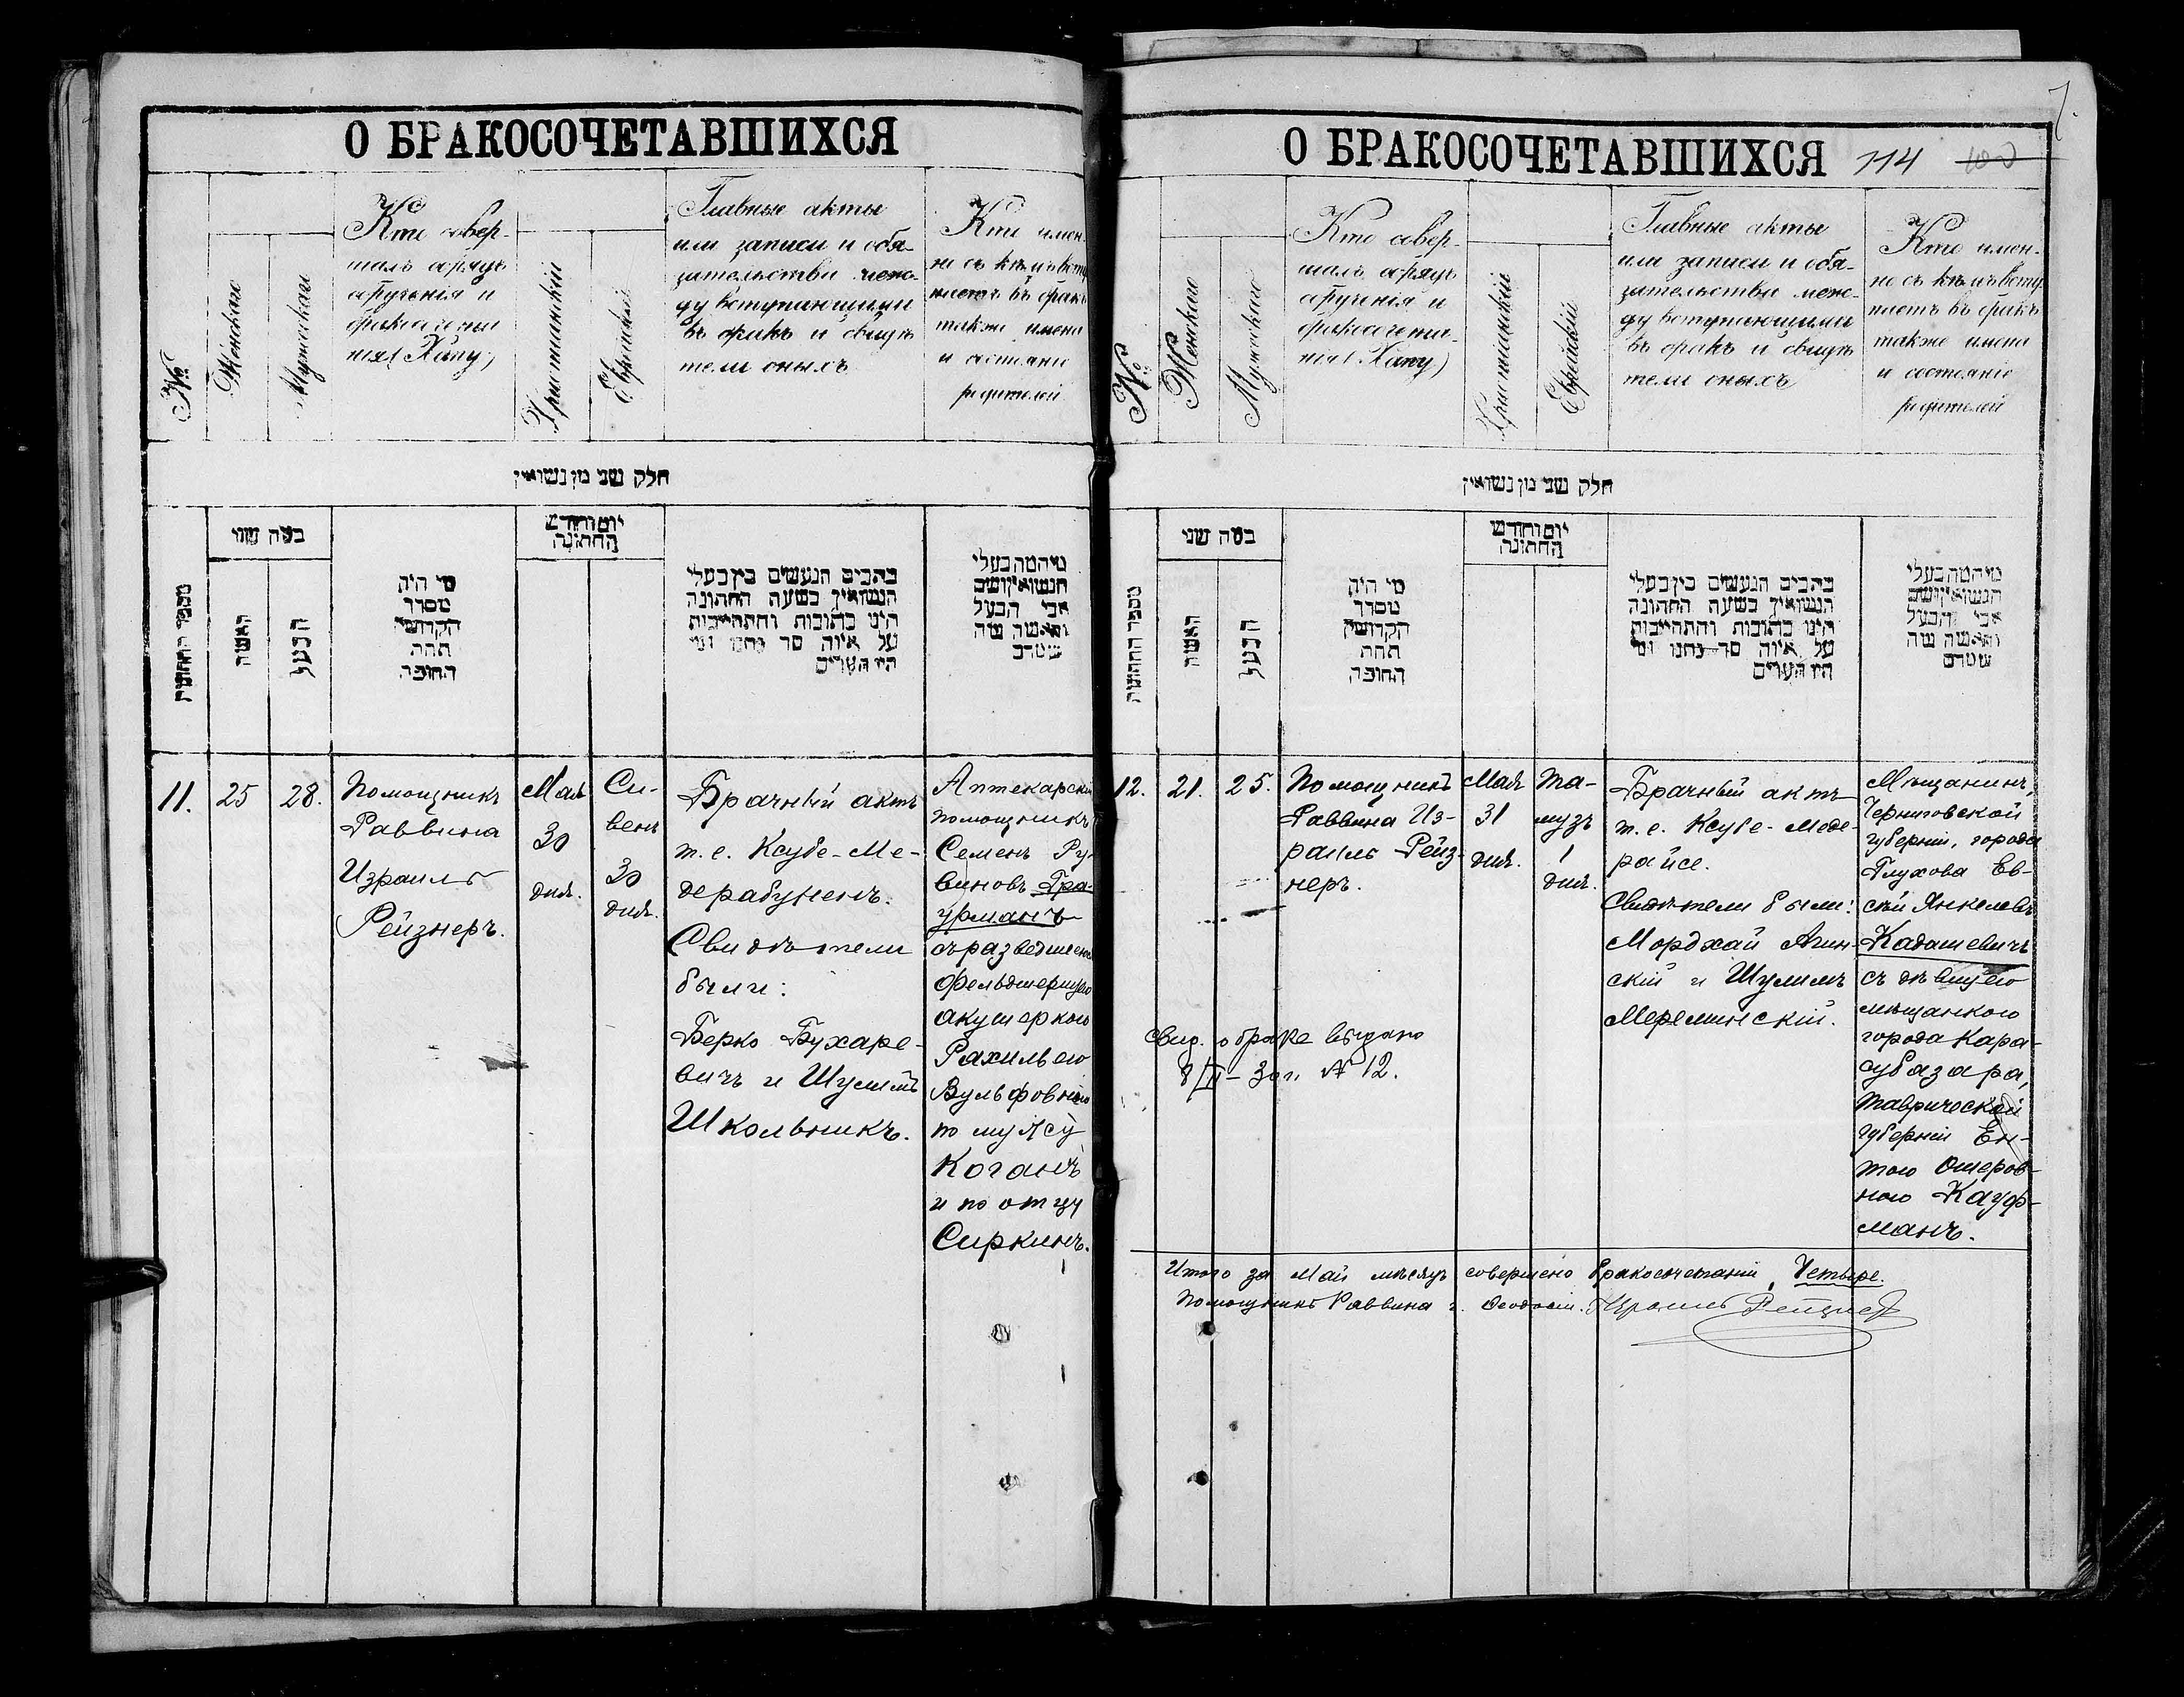 О БРАКОСОЧЕТАВШИХСЯ
№
Женскаго
Мужскаго
Кто совер-
шалъ обрядъ
обрученія и
бракосочета
нія (Хупу)
Христіанскій
Еврейскій
Главные акты
или записи и обя-
зательства меж-
ду вступающими
въ бракъ и свидѣ
тели оныхъ
Кто имен-
но съ кѣмъ всту
паетъ въ бракъ
также имена
и состояніе
родителей
חלק שני מן נשואין
מספר החתונות
במה שני
האשה
הבעל
מי היה
מסדר
הקדושין
תחת
החופה
יום וחודש
החתונה
הנשואין בשעה החתונה
היינו כתובות והתחייבות
11.
25
28.
Помощникъ
Раввина
Израиль
Рейзнеръ.
Мая
30
дня.
Си-
венъ
30
дня.
Брачный актъ
т. е. Ксубе-Ме-
дерабуненъ.
Свидѣтели
были:
Берко Бухаре-
вичъ и Шулимъ
Школьникъ.
Аптекарскій
помощникъ
Семенъ Ру-
виновъ Гра-
урманъ
съ разведеною
фельдшерицею
акушеркою
Рахилью
Вульфовною
по мужу
Коганъ
и по отцу
Сиркинъ.
О БРАКОСОЧЕТАВШИХСЯ 114
№
Женскаго
Мужскаго
Кто совер-
шалъ обрядъ
обрученія и
бракосочета-
нія (Хупу)
Христіанскій
Еврейскій
Главные акты
или записи и обя-
зательства меж-
ду вступающими
въ бракъ и свидѣ
тели оныхъ
Кто имен-
но съ кѣмъ всту
паетъ въ бракъ
также имена
и состояніе
родителей
חלק שני מן נשואין
מספר החתונות
במה שני
האשה
הבעל
מי היה
מסדר
הקדושין
תחת
החופה
יום וחודש
החתונה
הנשואין בשעה החתונה
היינו כתובות והתחייבות
12.
21.
25.
Помощникъ
Раввина Из-
раиль Рейз-
неръ.
Мая
31
дня.
Та-
музъ
1
дня.
Брачный актъ
т. е. Ксубе-Меде-
райсе.
Свидѣтели были:
Мордхай Агин-
скій и Шулимъ
Мереминскій.
Мѣщанинъ,
Черниговской
губерніи, города
Глухова Ев-
сѣй Янкелевъ
Кадашевичъ
съ дѣвицею
мѣщанкою
города Кара-
субазара,
Таврической
губерніи Ен-
тою Ошеров-
ною Кауф-
манъ.
Свид. о браке выдано
8/II-30 г. № 12.
Итого за Май мѣсяцъ совершено бракосочетаній, Четыре.
Помощникъ Раввина г. Ѳеодосіи. Израиль Рейзнеръ